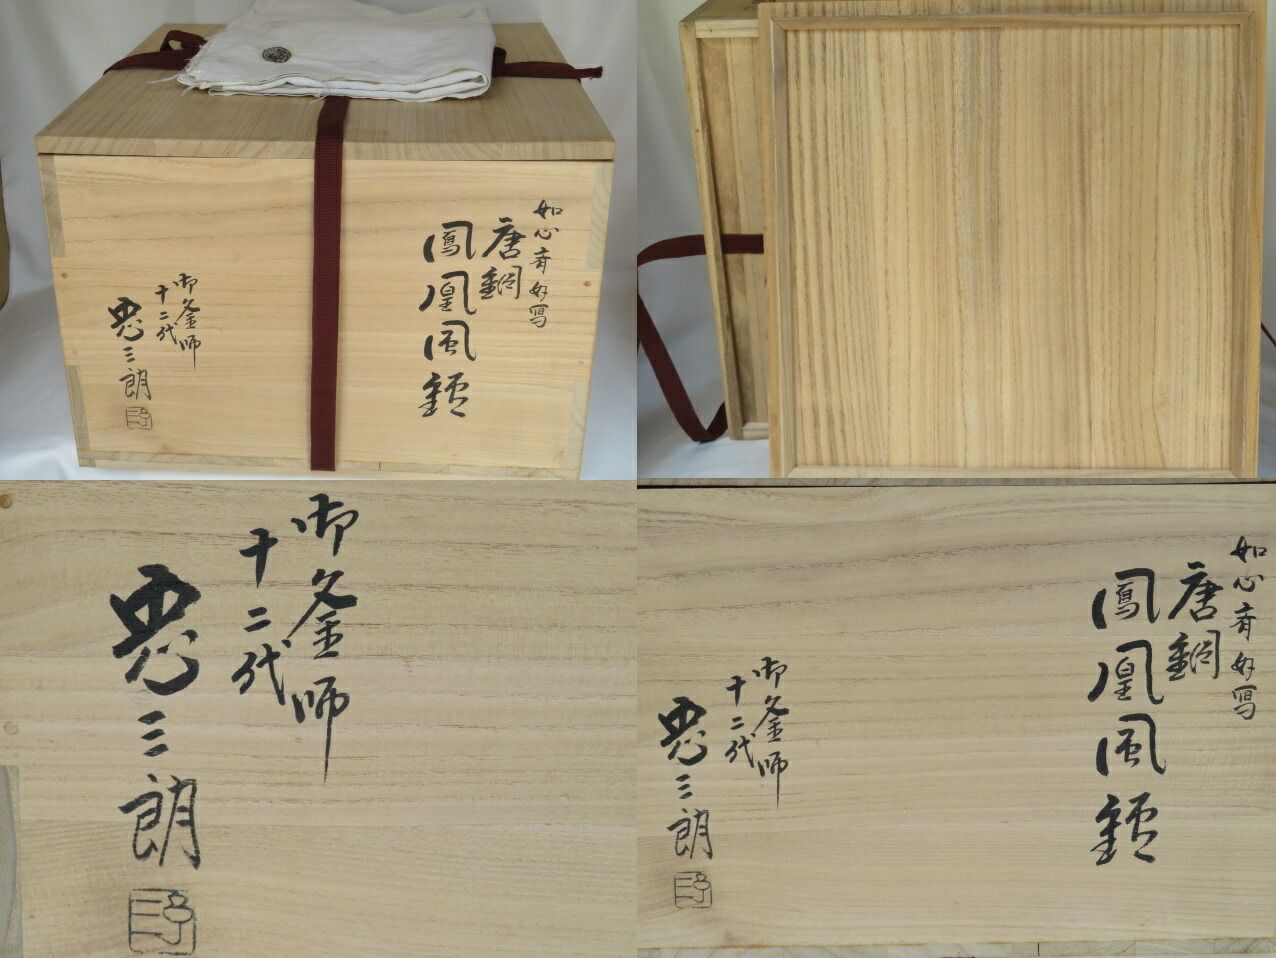 如心斎好写
唐銅
鳳凰風鑪
御釜師
十二代
忠三朗
御釜師
十二代
忠三朗
如心斎好写
唐銅
鳳凰風鑪
御釜師
十二代
忠三朗